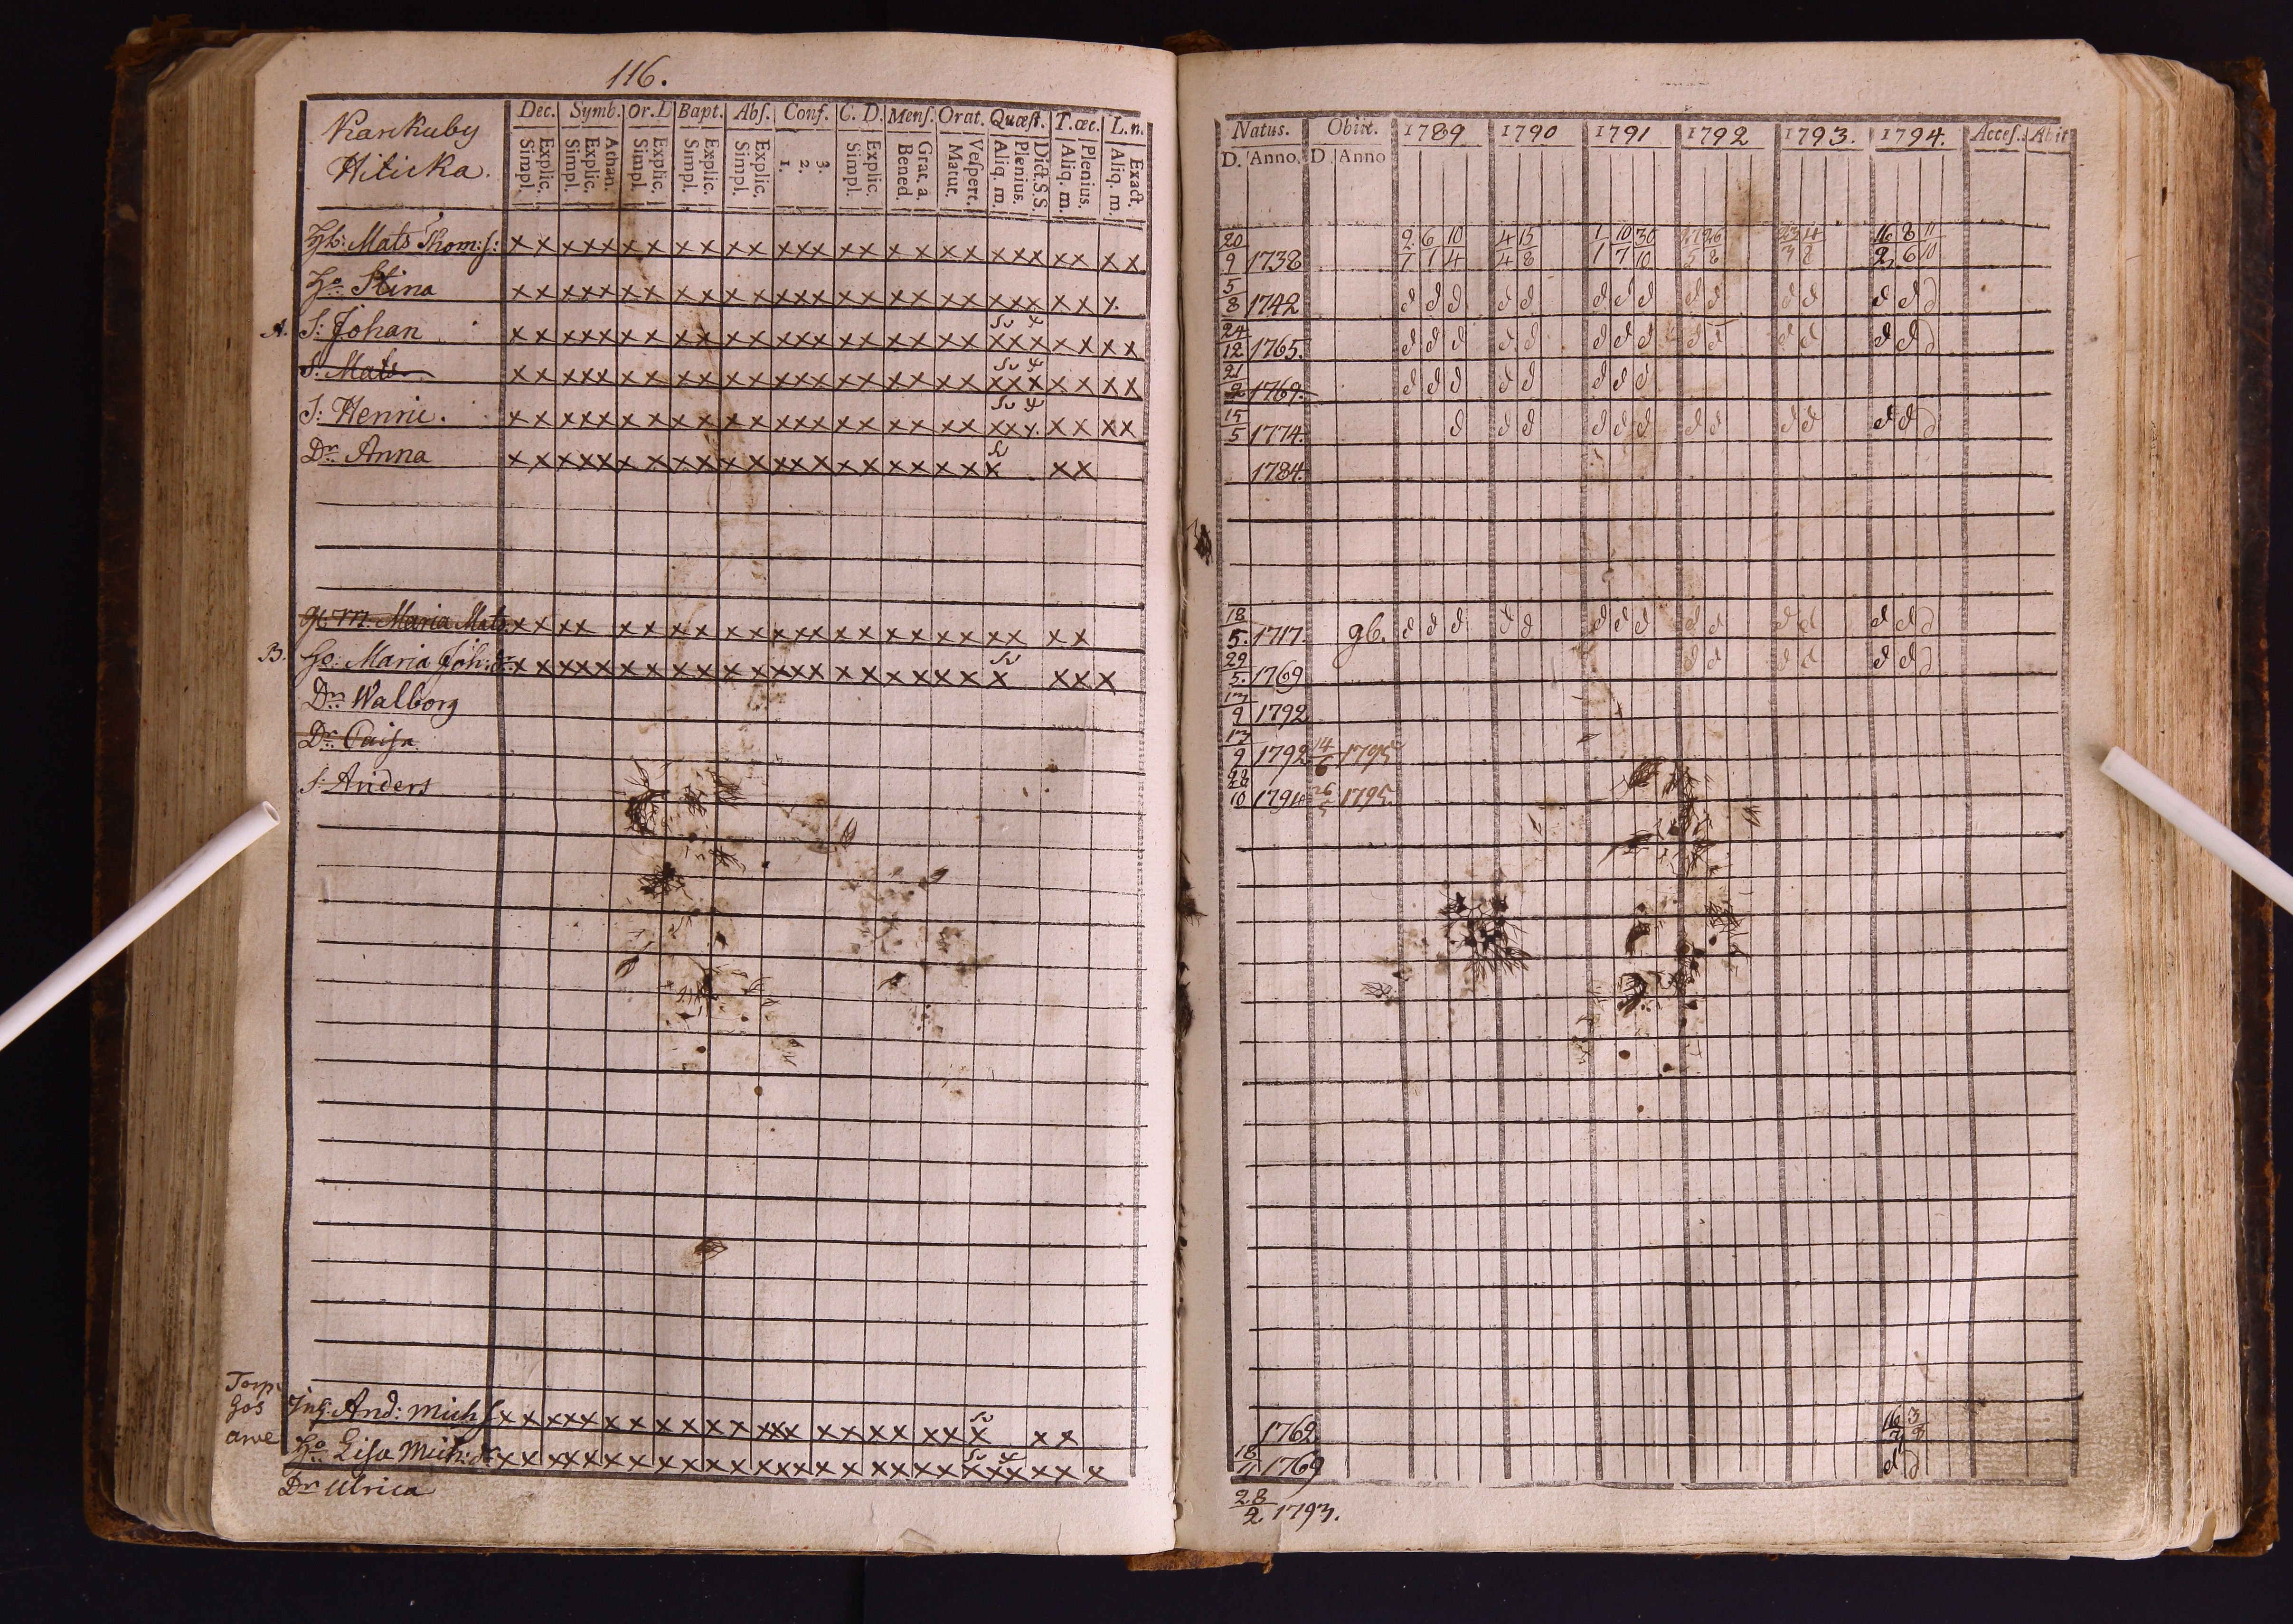 116.
Kankuby
Hiticka.
Dec. Symb. Or. D Bapt. Abſ. Conf. C. D. Menſ. Orat. Quæſt. T. œc. L. n.
Simpl. Explic. Simpl. Explic. Athan. Simpl. Explic. Simpl. Explic. Simpl. Explic. 1. 2. 3. Simpl. Explic. Bened. Grat. a. Matut. Veſpert. Aliq. m. Plenius. Dict. S. S Aliq. m. Plenius. Aliq. m. Exact.
Hb: Mats Thom:ſ: x x x x x x x x x x x x x x x x x x x x x x x x x x x
Ho Stina x x x x x x x x x x x x x x x x x x x x x x x x x x
A. S: Johan x x x x x x x x x x x x x x x x x x x x x x x x x x x
S: Mats x x x x x x x x x x x x x x x x x x x x x x x x x x x
S: Henric. x x x x x x x x x x x x x x x x x x x x x x x x x x x
Dr Anna x x x x x x x x x x x x x x x x x x x x x x x
gl. m. Maria Mats. x x x x x x x x x x x x x x x x x x x x x x x
B. Ho: Maria Joh:dr x x x x x x x x x x x x x x x x x x x x x x x x
Dr: Walborg
Dr. Caisa
S: Anders
Torp
gos
arve
Ing: And: Mich ſ x x x x x x x x x x x x x x x x x x x x x x
Ho Lisa Mich: dr x x x x x x x x x x x x x x x x x x x x x x x x x x
Dr Ulrica
Natus. Obiit. 1789 1790 1791 1792 1793. 1794. Acceſ. Abit
D. Anno. D. Anno
20/9 1738 2/1 6/1 10/4 4/4 15/8 1/1 10/7 30/10 16/2 8/6 11/10
5/8 1742 d d d d d d d d d d d d d d d
24/12 1765. d d d d d d d d d d d d d d d
21/2 1769. d d d d d d d d
15/5 1774. d d d d d d d d d d d d d
1784.
18/5. 1717. gb. d d d d d d d d d d d d d d d
29/5. 1769 d d d d d d d
17/9 1792
17/9 1792 14/6 1795
28/10 1794 26/5 1795.
1762 16/7 3/8
18/1 1769 d d
28/2 1793.